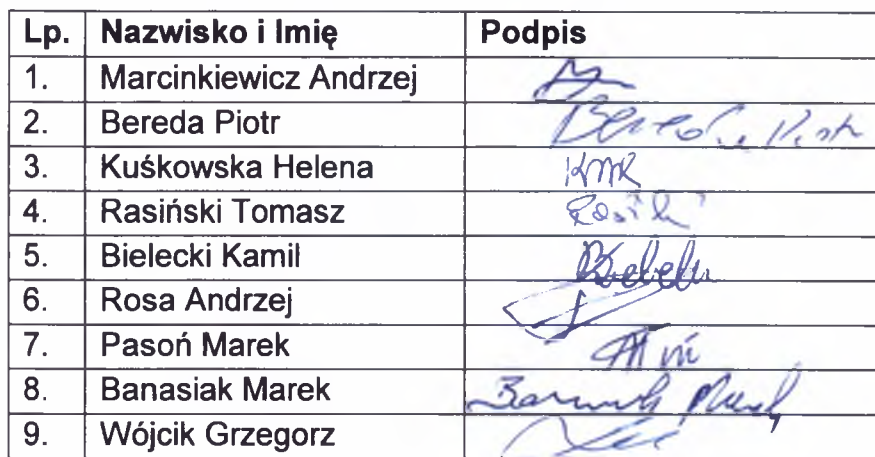 Lp. Nazwisko i Imię Podpis
1. Marcinkiewicz Andrzej
2. Bereda Piotr Bereda Piotr
3. Kuśkowska Helena
4. Rasiński Tomasz
5. Bielecki Kamil
6. Rosa Andrzej
7. Pasoń Marek
8. Banasiak Marek Banasiak Marek
9. Wójcik Grzegorz